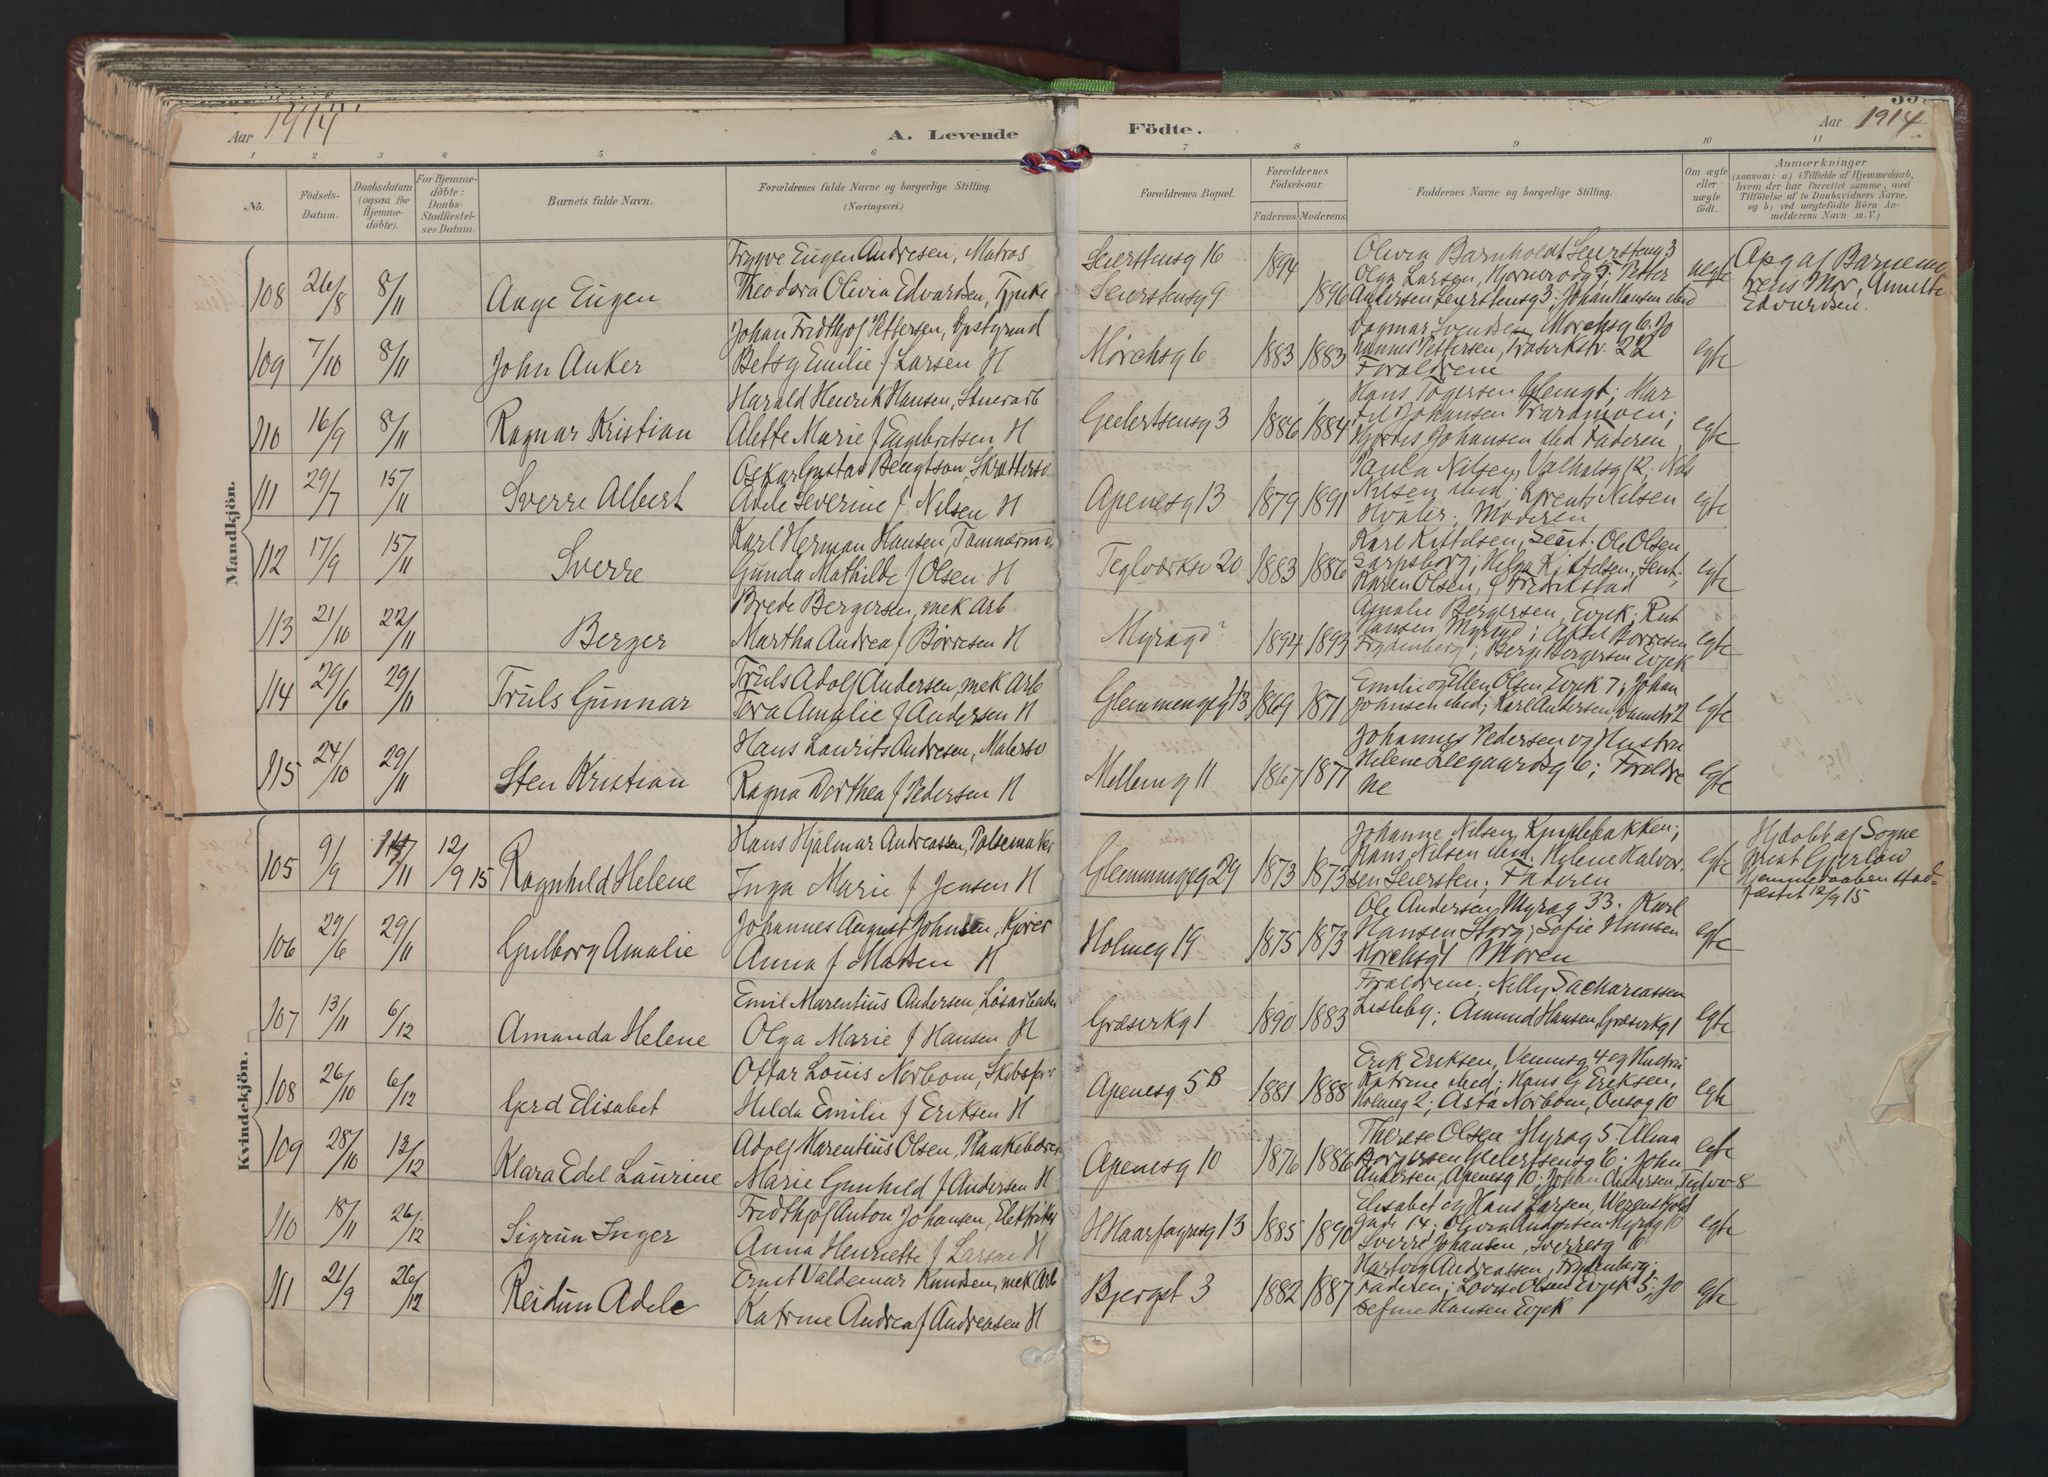 Aar 1914.
A. Levende
Födte.
Aar 1914.
1 2 3 4 5 6 7 8 9 10 11
Nö.
Födsels-Datum.
Daabsdatum (ogsaa for Hjemme-döbte).
For Hjemme-döbte: Daabs-Stadfæstel-ses Datum.
Barnets fulde Navn.
Forældrenes fulde Navne og borgerlige Stilling.
(Næringsvei.)
Forældrenes Bopæl.
Forældrenes Födselsaar.
Faderens. Moderens.
Faddernes Navne og borgerlige Stilling.
Om ægte eller uægte födt.
Anmærkninger
(saasom: a) i Tilfælde af Hjemmedaab,
hvem der har forrettet samme, med
Tilföielse af to Daabsvidners Navne.
og b) ved uægtefödte Börn An-
melderens Navn m. V.)
Mandkjön.
108 26/8 8/11 Aage Eugen
Trygve Eugen Andresen, Matros
Theodora Olivia Edvardsen, Tjenke
Seierstensg 16
Seierstensg 9
1894 1896
Olivia Barnholdt Seierstensg 3
Olga Larsen, 
Andersen Seierstensg 3; Johan Hansen ibid
uegte
Opg af Barnemo-
rens Mor, Annette
Edvardsen.
109 7/10 8/11 John Anker
Johan Fridthjof Pettersen,
Betsy Emilie f Larsen H
Mørchsg 6 1883 1883
Dagmar Svendsen, Mørchsg 6. Jo
hannes Pettersen, 22
Forældrene
egte
110 16/9 8/11 Ragnar Kristian
Harald Henrik Hansen, Stenarb
Alette Marie f Engebretsen H
Geelertsensg 3 1886 1884
Hans Tøgersen Glemgt; Mar
Johansen
Hjørdis Johansen ibid Faderen
egte
111 29/7 15/11 Sverre Albert
Oskar Gustav Bengtson, Skræddersv
Adele Severine f. Nilsen H
Apenesg 13 1879 1891
Paula Nilsen, Valhalsg 12. Nils
Nilsen ibid; Nilsen
Hvaler; Moderen
egte
112 17/9 15/11 Sverre
Karl Herman Hansen, Tømmermd
Gunda Mathilde f Olsen H
Teglværksv 20 1883 1886
Karl Kittelsen, Ole Olsen
Sarpsborg; Helga Kittelsen,
Karen Olsen, Fredrikstad
egte
113 21/10 22/11 Berger
Brede Bergersen, mek Arb
Martha Andrea f Børresen H
Myragd 1894 1893
Amalie Bergersen, Evjek; Rut
Hansen Myragd; Aksel Børresen
Frydenberg; Berge Bergersen Evjek
egte
114 29/6 29/11 Truls Gunnar
Truls Adolf Andersen, mek Arb
Tora Amalie f Andersen H
Glemmengg 13 1869 1871
Emilie og Ellen Olsen Evjek 7; Johan
Johansen ibid; Karl Andersen,
egte
115 24/10 29/11 Sten Kristian
Hans Laurits Andresen, Malersv
Ragna Dorthea f Pedersen H
Mellemg 11 1867 1877
Johannes Pedersen og Hustru
Helene Leegaardsg 6; Forældre
ne
egte
Kvindekjön.
105 9/9 /11 12/9 15 Ragnhild Helene
Hans Hjalmar Andreassen, Pølsemaker
Inga Marie f Jensen H
Glemmengeg 29 1873 1873
Johanne Nilsen, Kniplebakken;
Hans Nilsen ibid. Helene Halvor
sen Seiersten; Faderen
egte
Hjdøbt af Sogne
prest Gjerløw
Hjemmedaaben stad-
fæstet 12/9 15
106 29/6 29/11 Gulborg Amalie
Johannes August Johnsen, Kjører
Anna f Madsen H
Holmeg 19 1875 1873
Ole Andersen, Myrag 33. Karl
Hansen Storg; Sofie Hansen
Mørchsg 1 Moren
egte
107 13/11 6/12 Amanda Helene
Emil Marentius Andersen, Løsarbeider
Olga Marie f Hansen H
Græsvikg 1 1890 1883
Forældrene; Nelly Sachariassen
Lisleby; Amund Hansen, Græsvikg 1
egte
108 26/10 6/12 Gerd Elisabet
Ottar Louis Norbom, Skibsfører
Helda Emilie f Eriksen H
Apenesg 5B 1881 1888
Erik Eriksen, Vennesg 4 og Hustru
Katrine ibid; Hans G Eriksen,
Holmeg 2; Asta Norbom, Onsøg 10
egte
109 28/10 13/12 Klara Edel Laurine
Adolf Marentius Olsen, Plankebærer
Marie Gunhild f Andersen H
Apenesg 10 1876 1886
Therese Olsen Myrag 5. Alma
Borgersen Geelertsensg 6; John
Andersen, Apenesg 10; Johan Andersen, Teglvv 8
egte
110 18/11 26/12 Sigrun Inger
Fridthjof Anton Johansen, Elektriker
Anna Henriette f Larsen H
H Haarfagresg 13 1885 1890
Elisabet og Hans Larsen, Werenskjold
gade 14; Olivia Andersen Myrag 10
Sverre Johansen, Sverresg 6
egte
111 21/9 26/12 Reidun Adele
Ernst Valdemar Knudsen, mek Arb
Katrine Andrea f Andreasen H
Bjergst 3 1882 1887
Hartvig Andreassen, Frydenberg;
Faderen; Lovise Olsen Evjek 5; Jo
sefine Hansen Evjek
egte